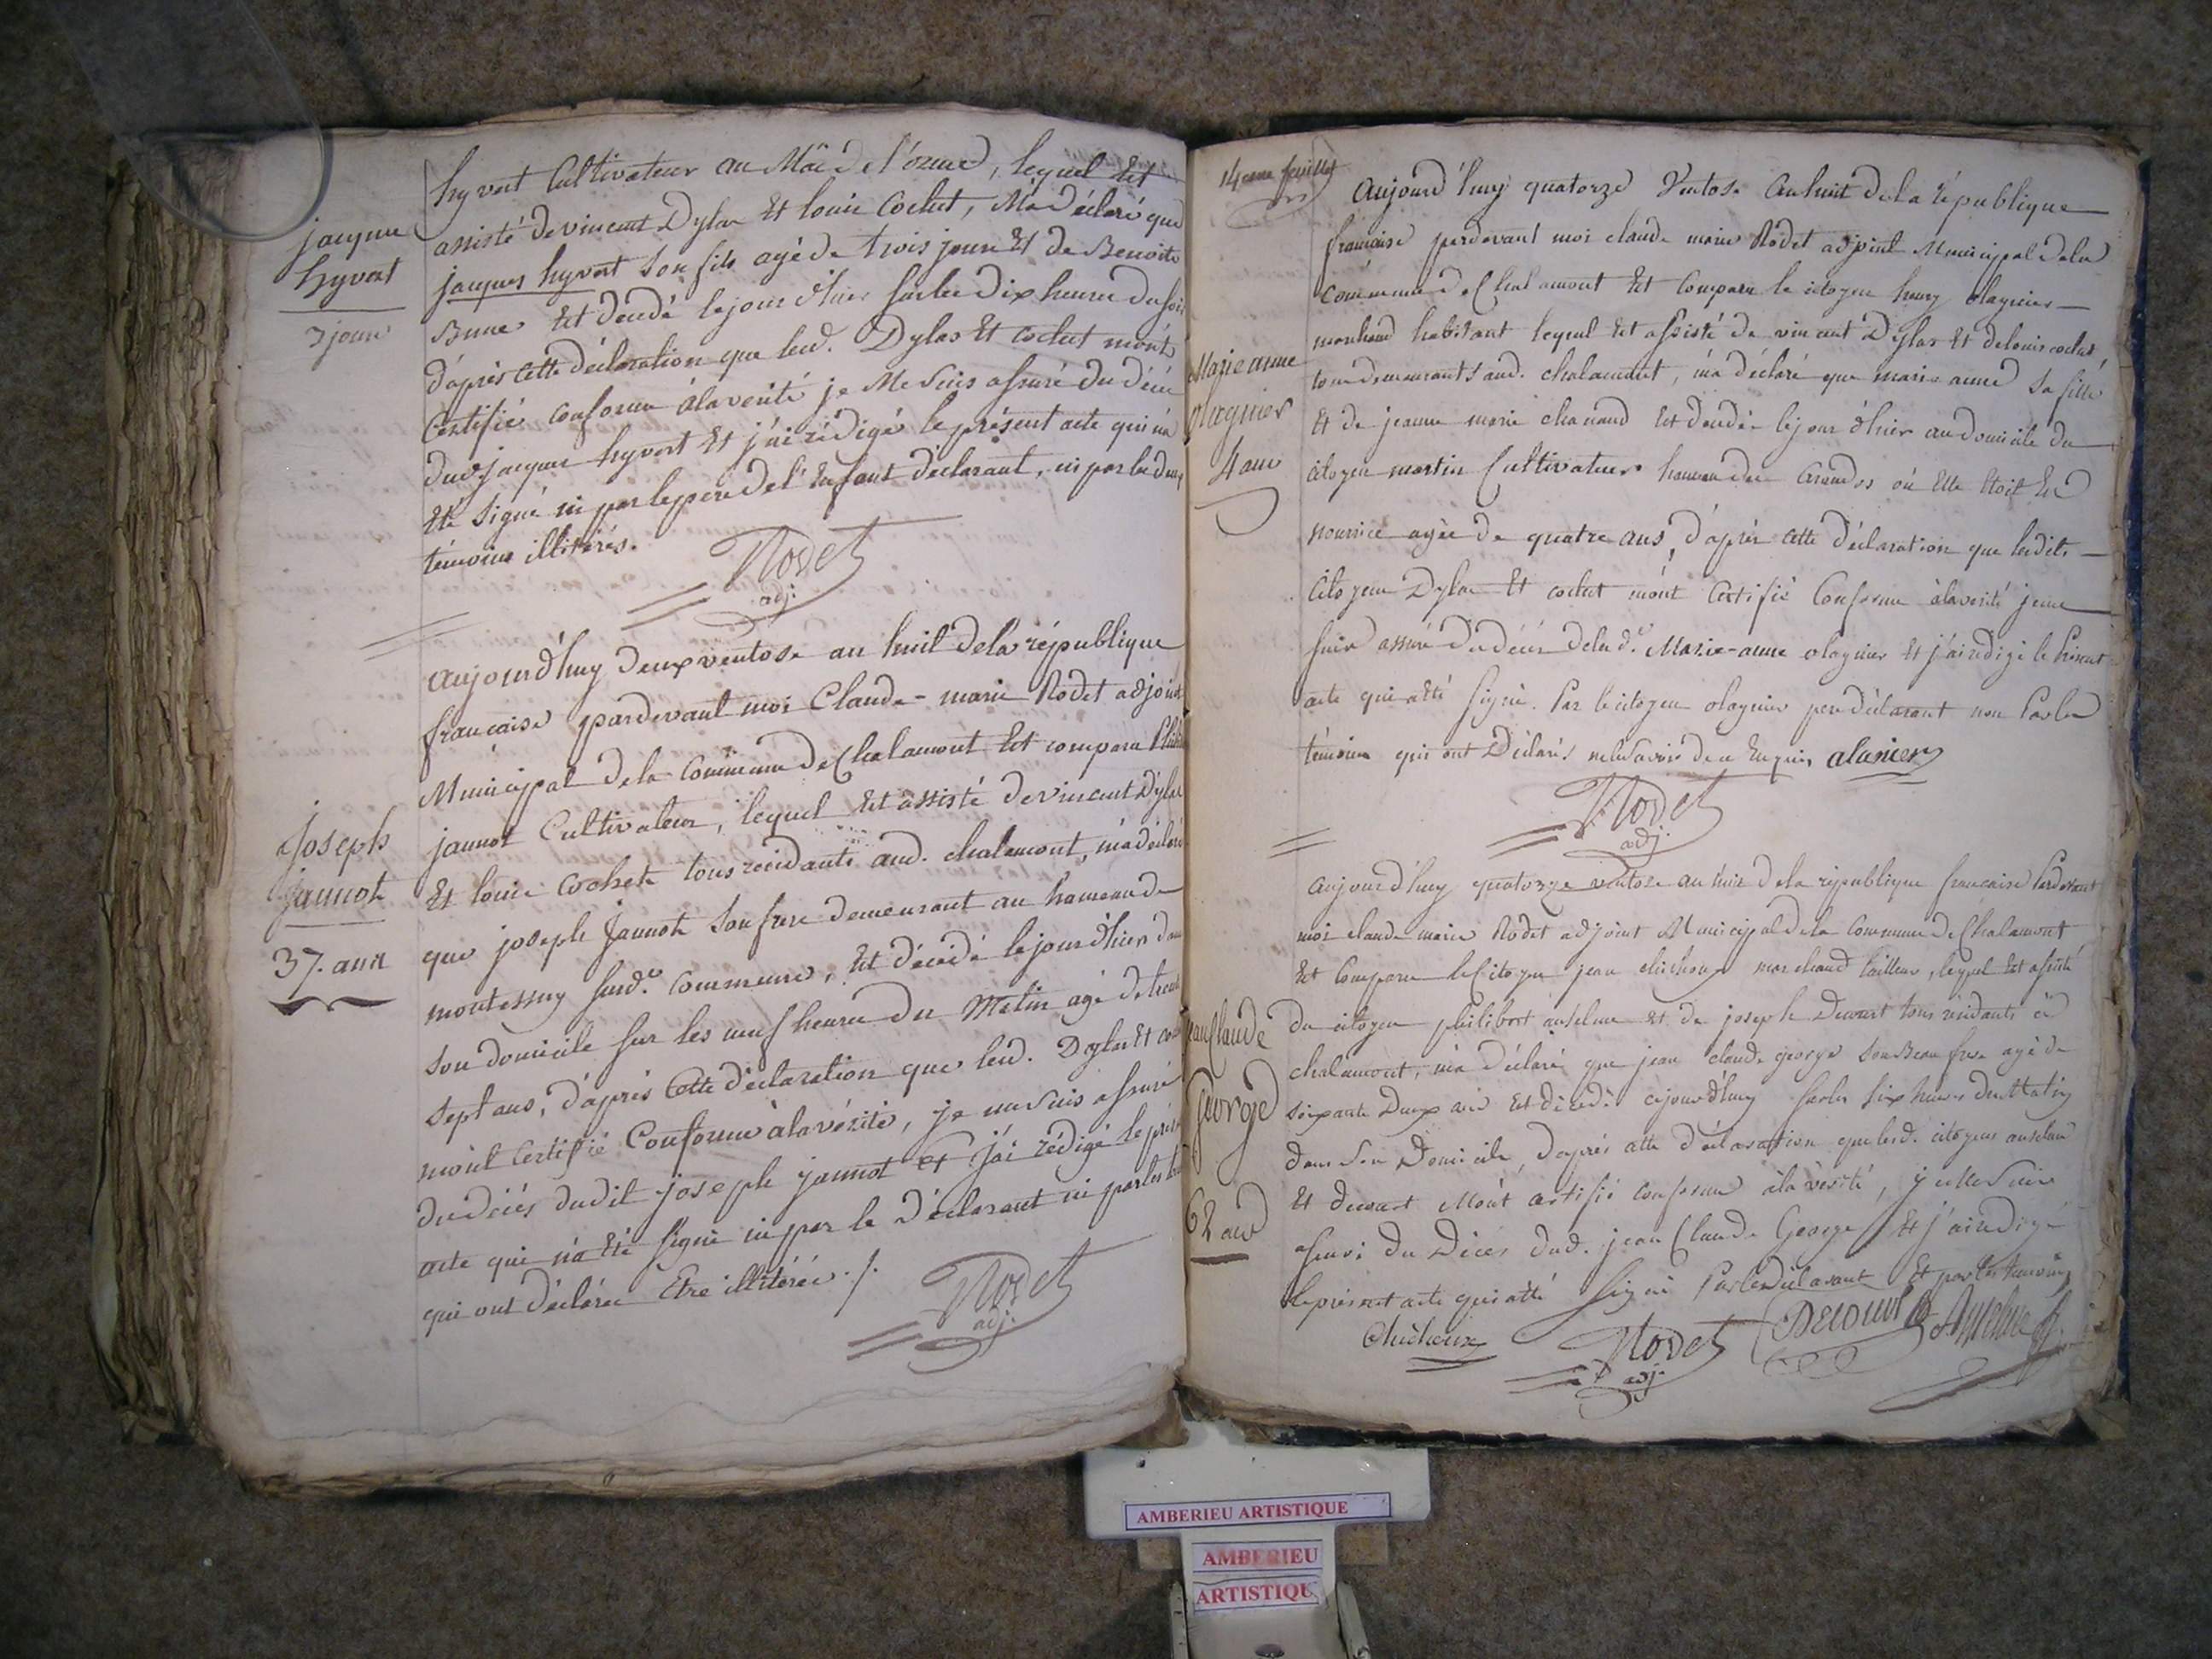 jacques
hyvert
3 jours
hyvert Cultivateur au Mâs de l'orme, lequel Et
assisté de vincent Dylas Et louis Cochet, M'a déclaré que
jacques hyvert son fils agé de trois jours Et de Benoite
Brune Est décédé le jour d'hier sur les Dix heures du soir
d'après cette déclaration que lesd. Dylas Et cochet m'ont
Certifié conforme à la verité je Me suis assuré du décés
dud. jacques hyvert Et j'ai rédigé le présent acte qui n'a
Eté signé ni par le pere de l'Enfant déclarant, ni par les deux
témoins illitérés.
Rodet
adj.
Joseph
Jannot
37. ans
aujourd'huy deux ventose an huit de la république
francaise pardevant moi Claude-marie Rodet adjoint
Municipal de la Commune de Chalamont Est comparu
jannot Cultivateur, lequel Est assisté de vincent Dylas
Et louis Cochet tous residants aud. chalamont, m'a déclaré
que joseph Jannot Son frere demeurant au hameau de
montessuy sud.e Commune, Est décédé le jour d'hier dans
Son domicile sur les neuf heures du Matin agé de trente
Sept ans, d'après Cette déclaration que lesd. Dylas Et
m'ont Certifié Conforme à la vérité, je me suis assuré
du décés dudit joseph jannot Et j'ai rédigé le
acte qui n'a Eté signé ni par le Déclarant ni par les
qui ont déclarés Etre illitérés ./.
Rodet
adj.
14eme feuillet
Marie anne
olagnier
4 ans
aujourd'huy quatorze Ventose an huit de la république
française pardevant moi claude marie Rodet adjoint Municipal de la
Commune de Chalamont Est Comparu le citoyen henry olagnier
marchand habitant lequel Est assisté de vincent Dylas Et de louis cochet
tous demeurants aud. chalamont, m'a déclaré que marie anne sa fille
Et de jeanne marie chanaud Est décédée le jour d'hier au domicile du
citoyen martin Cultivateur hameau des où Elle Etoit En
nourrice agée de quatre ans, d'après cette déclaration que lesdits
Citoyens Dylas Et cochet m'ont Certifié Conforme à la verité je me
suis assuré du décés de lad.e Marie-anne olagnier Et j'ai rédigé le Présent
acte qui a Eté signé. Par le citoyen olagnier pere déclarant non Par les
témoins qui ont Déclarés ne le savoir de ce Enquis olanier
Rodet
adj
jean Claude
George
62 ans
aujourd'huy quatorze ventose an huit de la république francaise Pardevant
moi claude marie Rodet adjoint Municipal de la Commune de Chalamont
Est Comparu le Citoyen jean chicheux marchand tailleur, lequel Est assisté
du citoyen philibert anselme Et de joseph Decourt tous residants à
chalamont, m'a déclaré que jean claude george son Beau frere agé de
soixante Deux ans Est décédé cejourd'huy sur les six heures du Matin
dans son Domicile, d'après cette déclaration que lesd. citoyens anselme
Et decourt M'ont certifié conforme à la vérité, je Me suis
assuré du Décés dud. jean Claude George Et j'ai rédigé
le présent acte qui a Eté signé Par le Déclarant Et par les témoins
Chicheux
Rodet
adj.
Decourt
Anselme
AMBERIEU ARTISTIQUE
AMBERIEU
ARTISTIQU